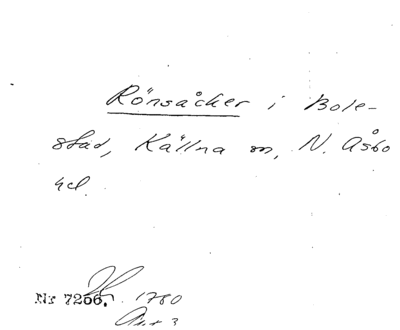 Rönsåcker i Bole-
stad, Källna sn, N. Åsbo
hd.
Nr 7256. 1780